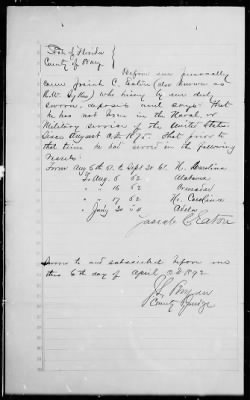 State of Florida }
County of Bay }
Before me personally
came Josiah C. Eaton (also known as
who being by me duly
sworn, deposes and says: that
he has not been in the Naval, or
Military service of the United States
since August A.D. 1875. That prior to
that time he had served in the following
Vessels:
From Aug 6th 61. to Sept 30 61. No. Carolina
To Aug. 6 62 Alabama
" 16 62
" 17 62 No. Carolina
" July 30
Josiah C Eaton
Sworn to and subscribed before me
this 6th day of April A.D. 1892
County Judge